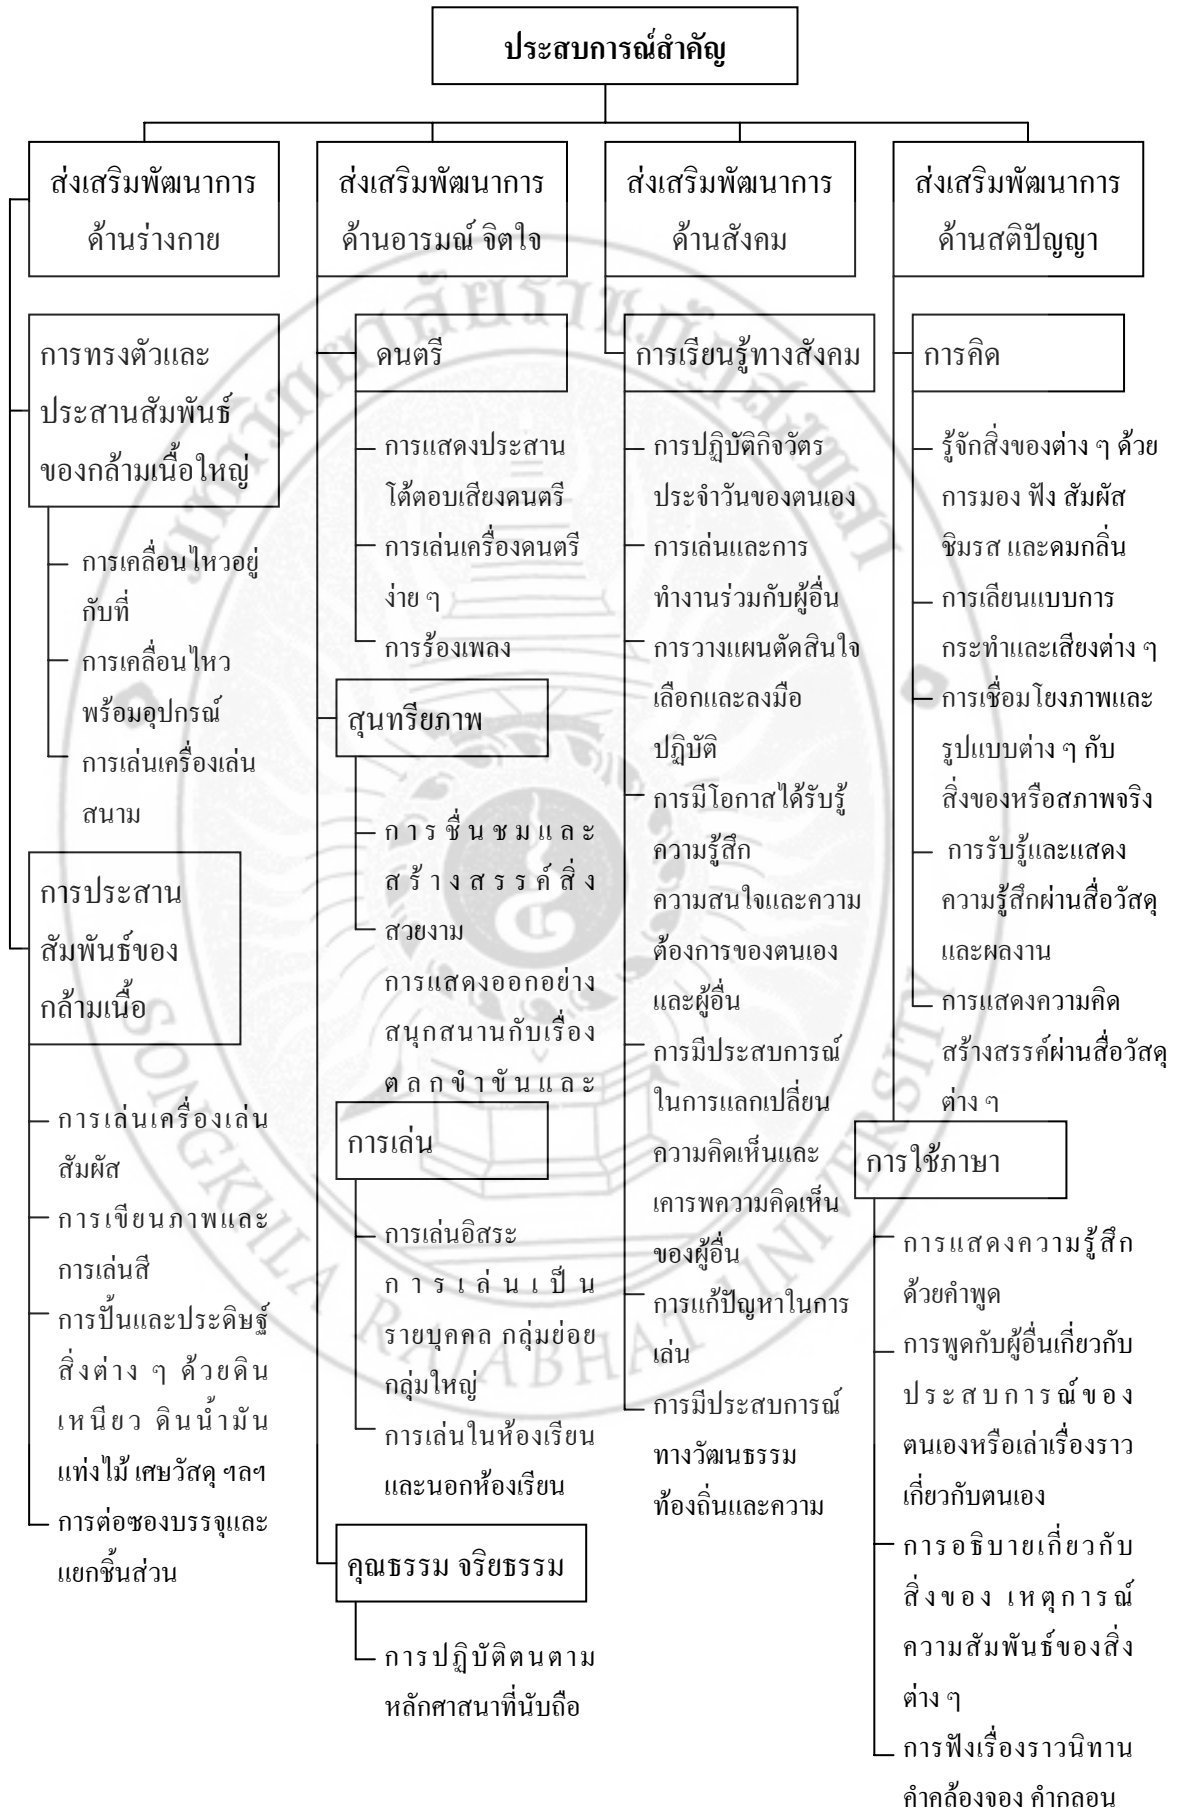 ประสบการณ์สำคัญ
ส่งเสริมพัฒนาการ
ด้านร่างกาย
การทรงตัวและ
ประสานสัมพันธ์
ของกล้ามเนื้อใหญ่
การเคลื่อนไหวอยู่
กับที่
การเคลื่อนไหว
พร้อมอุปกรณ์
การเล่นเครื่องเล่น
สนาม
การประสาน
สัมพันธ์ของ
กล้ามเนื้อ
การเล่นเครื่องเล่น
สัมผัส
การเขียนภาพและ
การเล่นสี
การปั้นและประดิษฐ์
สิ่งต่าง ๆ ด้วยดิน
เหนียว ดินน้ำมัน
แท่งไม้ เศษวัสดุ ฯลฯ
การต่อซองบรรจุและ
แยกชิ้นส่วน
ส่งเสริมพัฒนาการ
ด้านอารมณ์ จิตใจ
ดนตรี
การแสดงประสาน
โต้ตอบเสียงดนตรี
การเล่นเครื่องดนตรี
ง่าย ๆ
การร้องเพลง
สุนทรียภาพ
การชื่นชมและ
สร้างสรรค์สิ่ง
สวยงาม
การแสดงออกอย่าง
สนุกสนานกับเรื่อง
ตลกขำขันและ
การเล่น
การเล่นอิสระ
การเล่นเป็น
รายบุคคล กลุ่มย่อย
กลุ่มใหญ่
การเล่นในห้องเรียน
และนอกห้องเรียน
คุณธรรม จริยธรรม
การปฏิบัติตนตาม
หลักศาสนาที่นับถือ
ส่งเสริมพัฒนาการ
ด้านสังคม
การเรียนรู้ทางสังคม
การปฏิบัติกิจวัตร
ประจำวันของตนเอง
การเล่นและการ
ทำงานร่วมกับผู้อื่น
การวางแผนตัดสินใจ
เลือกและลงมือ
ปฏิบัติ
การมีโอกาสได้รับรู้
ความรู้สึก
ความสนใจและความ
ต้องการของตนเอง
และผู้อื่น
การมีประสบการณ์
ในการแลกเปลี่ยน
ความคิดเห็นและ
เคารพความคิดเห็น
ของผู้อื่น
การแก้ปัญหาในการ
เล่น
การมีประสบการณ์
ทางวัฒนธรรม
ท้องถิ่นและความ
ส่งเสริมพัฒนาการ
ด้านสติปัญญา
การคิด
รู้จักสิ่งของต่าง ๆ ด้วย
การมอง ฟัง สัมผัส
ชิมรส และดมกลิ่น
การเลียนแบบการ
กระทำและเสียงต่าง ๆ
การเชื่อมโยงภาพและ
รูปแบบต่าง ๆ กับ
สิ่งของหรือสภาพจริง
การรับรู้และแสดง
ความรู้สึกผ่านสื่อวัสดุ
และผลงาน
การแสดงความคิด
สร้างสรรค์ผ่านสื่อวัสดุ
ต่าง ๆ
การใช้ภาษา
การแสดงความรู้สึก
ด้วยคำพูด
การพูดกับผู้อื่นเกี่ยวกับ
ประสบการณ์ของ
ตนเองหรือเล่าเรื่องราว
เกี่ยวกับตนเอง
การอธิบายเกี่ยวกับ
สิ่งของ เหตุการณ์
ความสัมพันธ์ของสิ่ง
ต่าง ๆ
การฟังเรื่องราวนิทาน
คำคล้องจอง คำกลอน
มหาวิทยาลัยราชภัฏสงขลา
SONGKHLA RAJABHAT UNIVERSITY